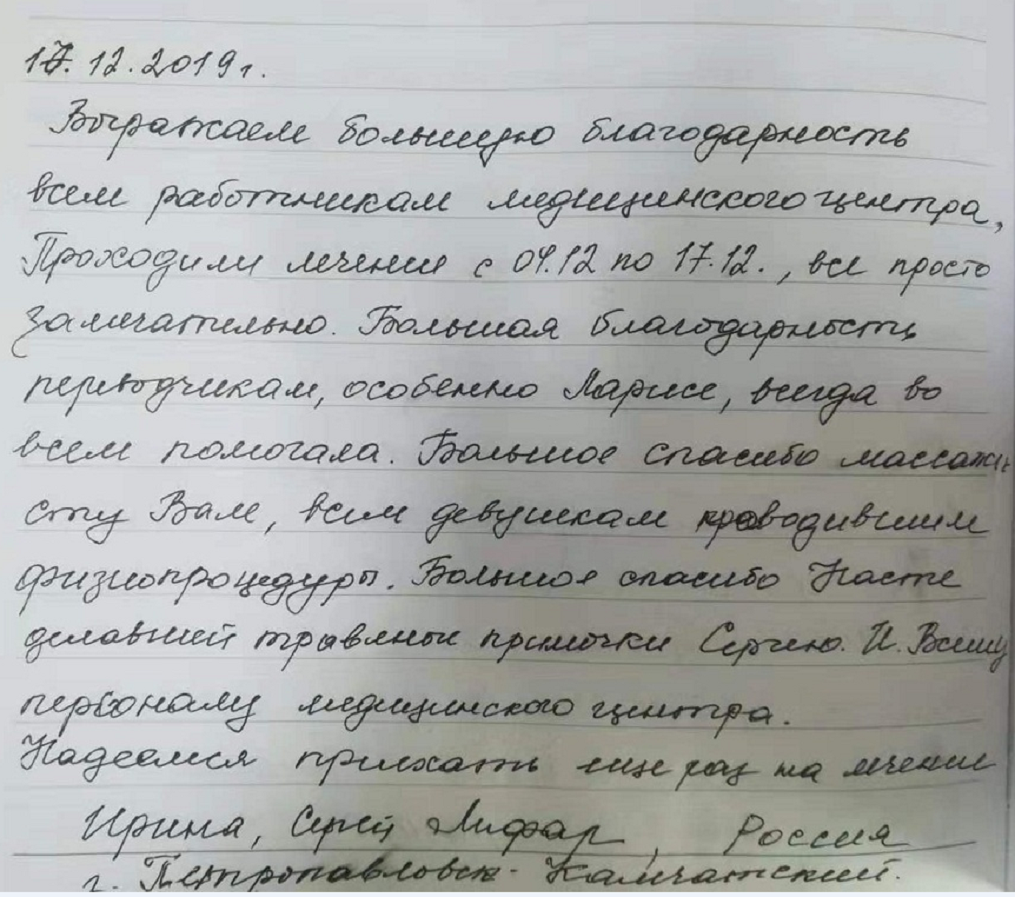 17.12.2019г.
Выражаем большую благодарность
всем работникам медицинского центра,
Проходили лечение с 04.12 по 17.12., все просто
замечательно. Большая благодарность
переводчикам, особенно Ларисе, всегда во
всем помогала. Большое спасибо массажи
сту Вале, всем девушкам проводившим
физиопроцедуры. Большое спасибо Насте
делавшей травяные примочки Сергею. И. Всему
персоналу медицинского центра.
Надеемся приехать еще раз на лечение
Ирина, Сергей Лифар, Россия
г. Петропавловск-Камчатский.